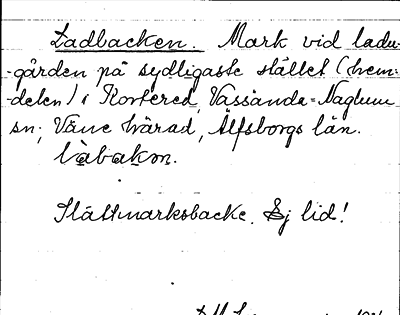 Ladbacken. Mark vid ladu-
-gården på sydligaste stället (hem-
-delen) i Korsered, Vassända-Naglum
sn; Väne härad, Älfsborgs län.
làbakɒn.
Slättmarksbacke. Ej lid!